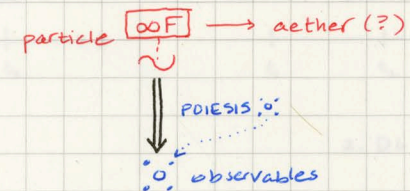 particle ooF → aether (?)
POIESIS
observables